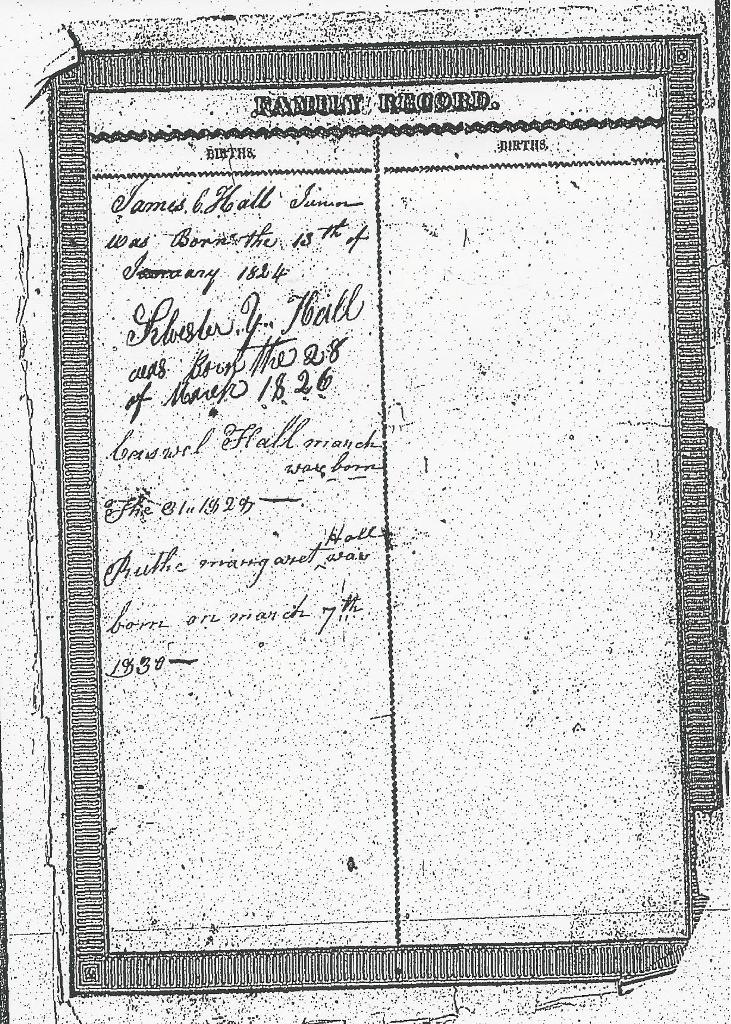 FAMILY RECORD.
BIRTHS.
James C. Hall Junior
was Born the 13th of
January 1824
Silvester Y. Hall
was Born the 28
of March 1826
Caswel Hall march
was born
The 31.. 182
Ruthe margaret Hall
was
born on march 7th
1830
BIRTHS.